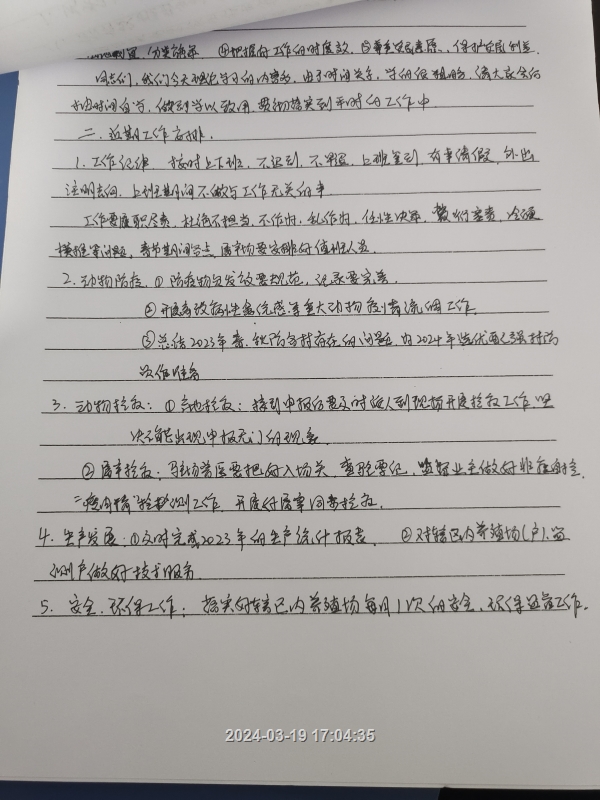 分类确录 ④把握好工作的时度效, ⑤尊重农民意愿, 保护农民利益.
同志们, 我们今天理论学习的内容多, 由于时间关系, 学的很粗略, 请大家会后
时间自学, 做到学以致用, 要彻落实到平时的工作中
二、近期工作安排.
1. 工作纪律 按时上下班, 不迟到, 不早退, 上班签到, 有事请假, 外出
注明去向, 上班期间不做与工作无关的事
工作要履职尽责, 杜绝不担当, 不作为, 乱作为, 任性决策, 冷硬
横推等问题, 春节期间 屠宰场要安排好值班人员
2. 动物防疫, ① 防疫物资发放要规范, 记录要完善
② 开展高致病性禽流感等重大动物疫情流调工作.
③ 总结2023年春、秋防存在的问题, 为2024年 强制防
疫作准备
3. 动物检疫: ① 产地检疫: 接到申报后要及时派人到现场开展检疫工作 坚
决不能出现申报无门的现象
② 屠宰检疫, 驻场兽医要把好入场关, 查验登记, 监督业主做好非瘟自检,
"瘦肉精" 检测工作, 开展好屠宰同步检疫.
4. 生产发展 ① 及时完成2023年的生产统计报表 ② 对辖区内养殖场(户), 监
测户做好技术服务
5. 安全、环保工作: 落实好辖区内养殖场每月1次的安全、环保监管工作.
2024-03-19 17:04:35